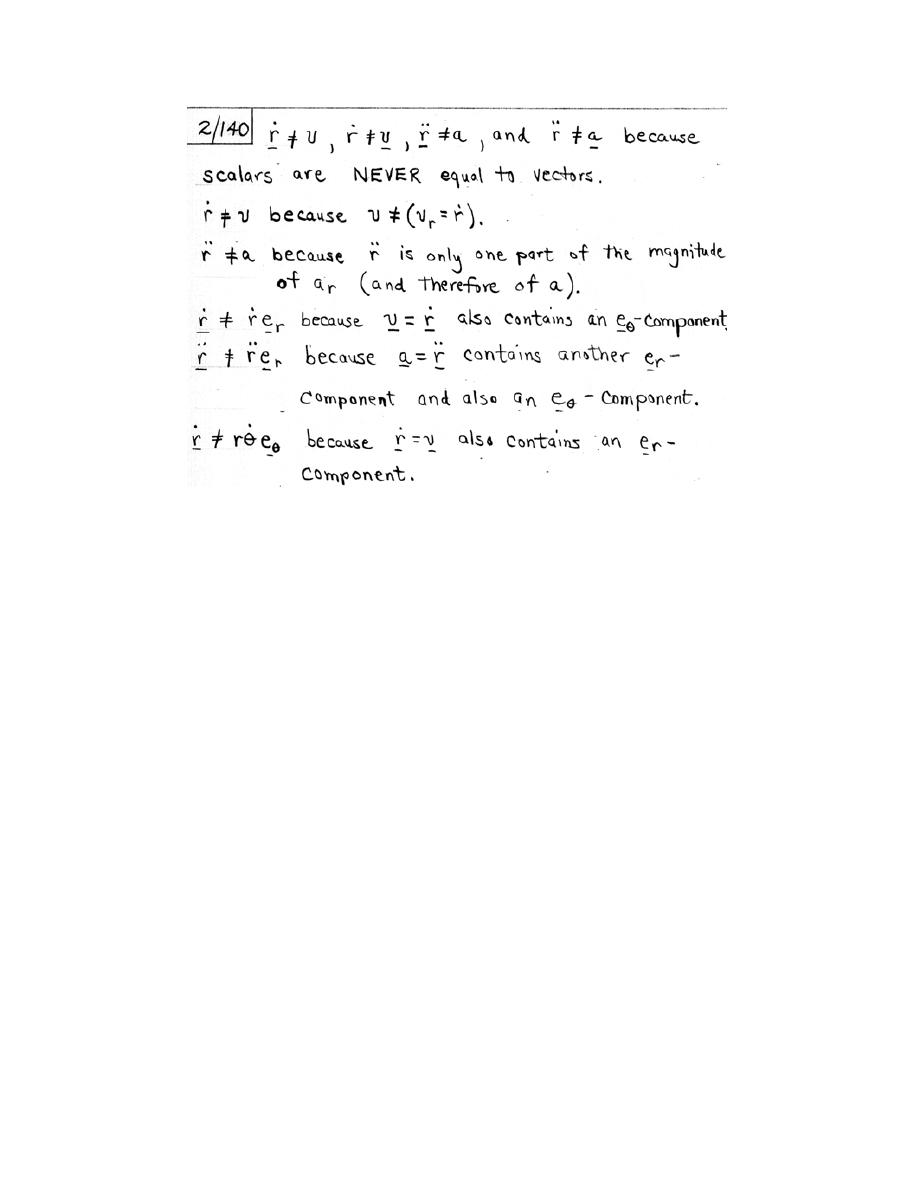 2/140 ṙ̲ ≠ v , ṙ ≠ v̲ , r̲̈ ≠ a , and r̈ ≠ a̲ because
scalars are NEVER equal to vectors.
ṙ ≠ v because v ≠ (vᵣ = ṙ).
r̈ ≠ a because r̈ is only one part of the magnitude
of aᵣ (and therefore of a).
ṙ̲ ≠ ṙ e̲ᵣ because v̲ = ṙ̲ also contains an e̲_θ-component.
r̲̈ ≠ r̈ e̲ᵣ because a̲ = r̲̈ contains another e̲ᵣ-
component and also an e̲_θ - component.
ṙ̲ ≠ rθ̇ e̲_θ because ṙ̲ = v̲ also contains an e̲ᵣ-
component.